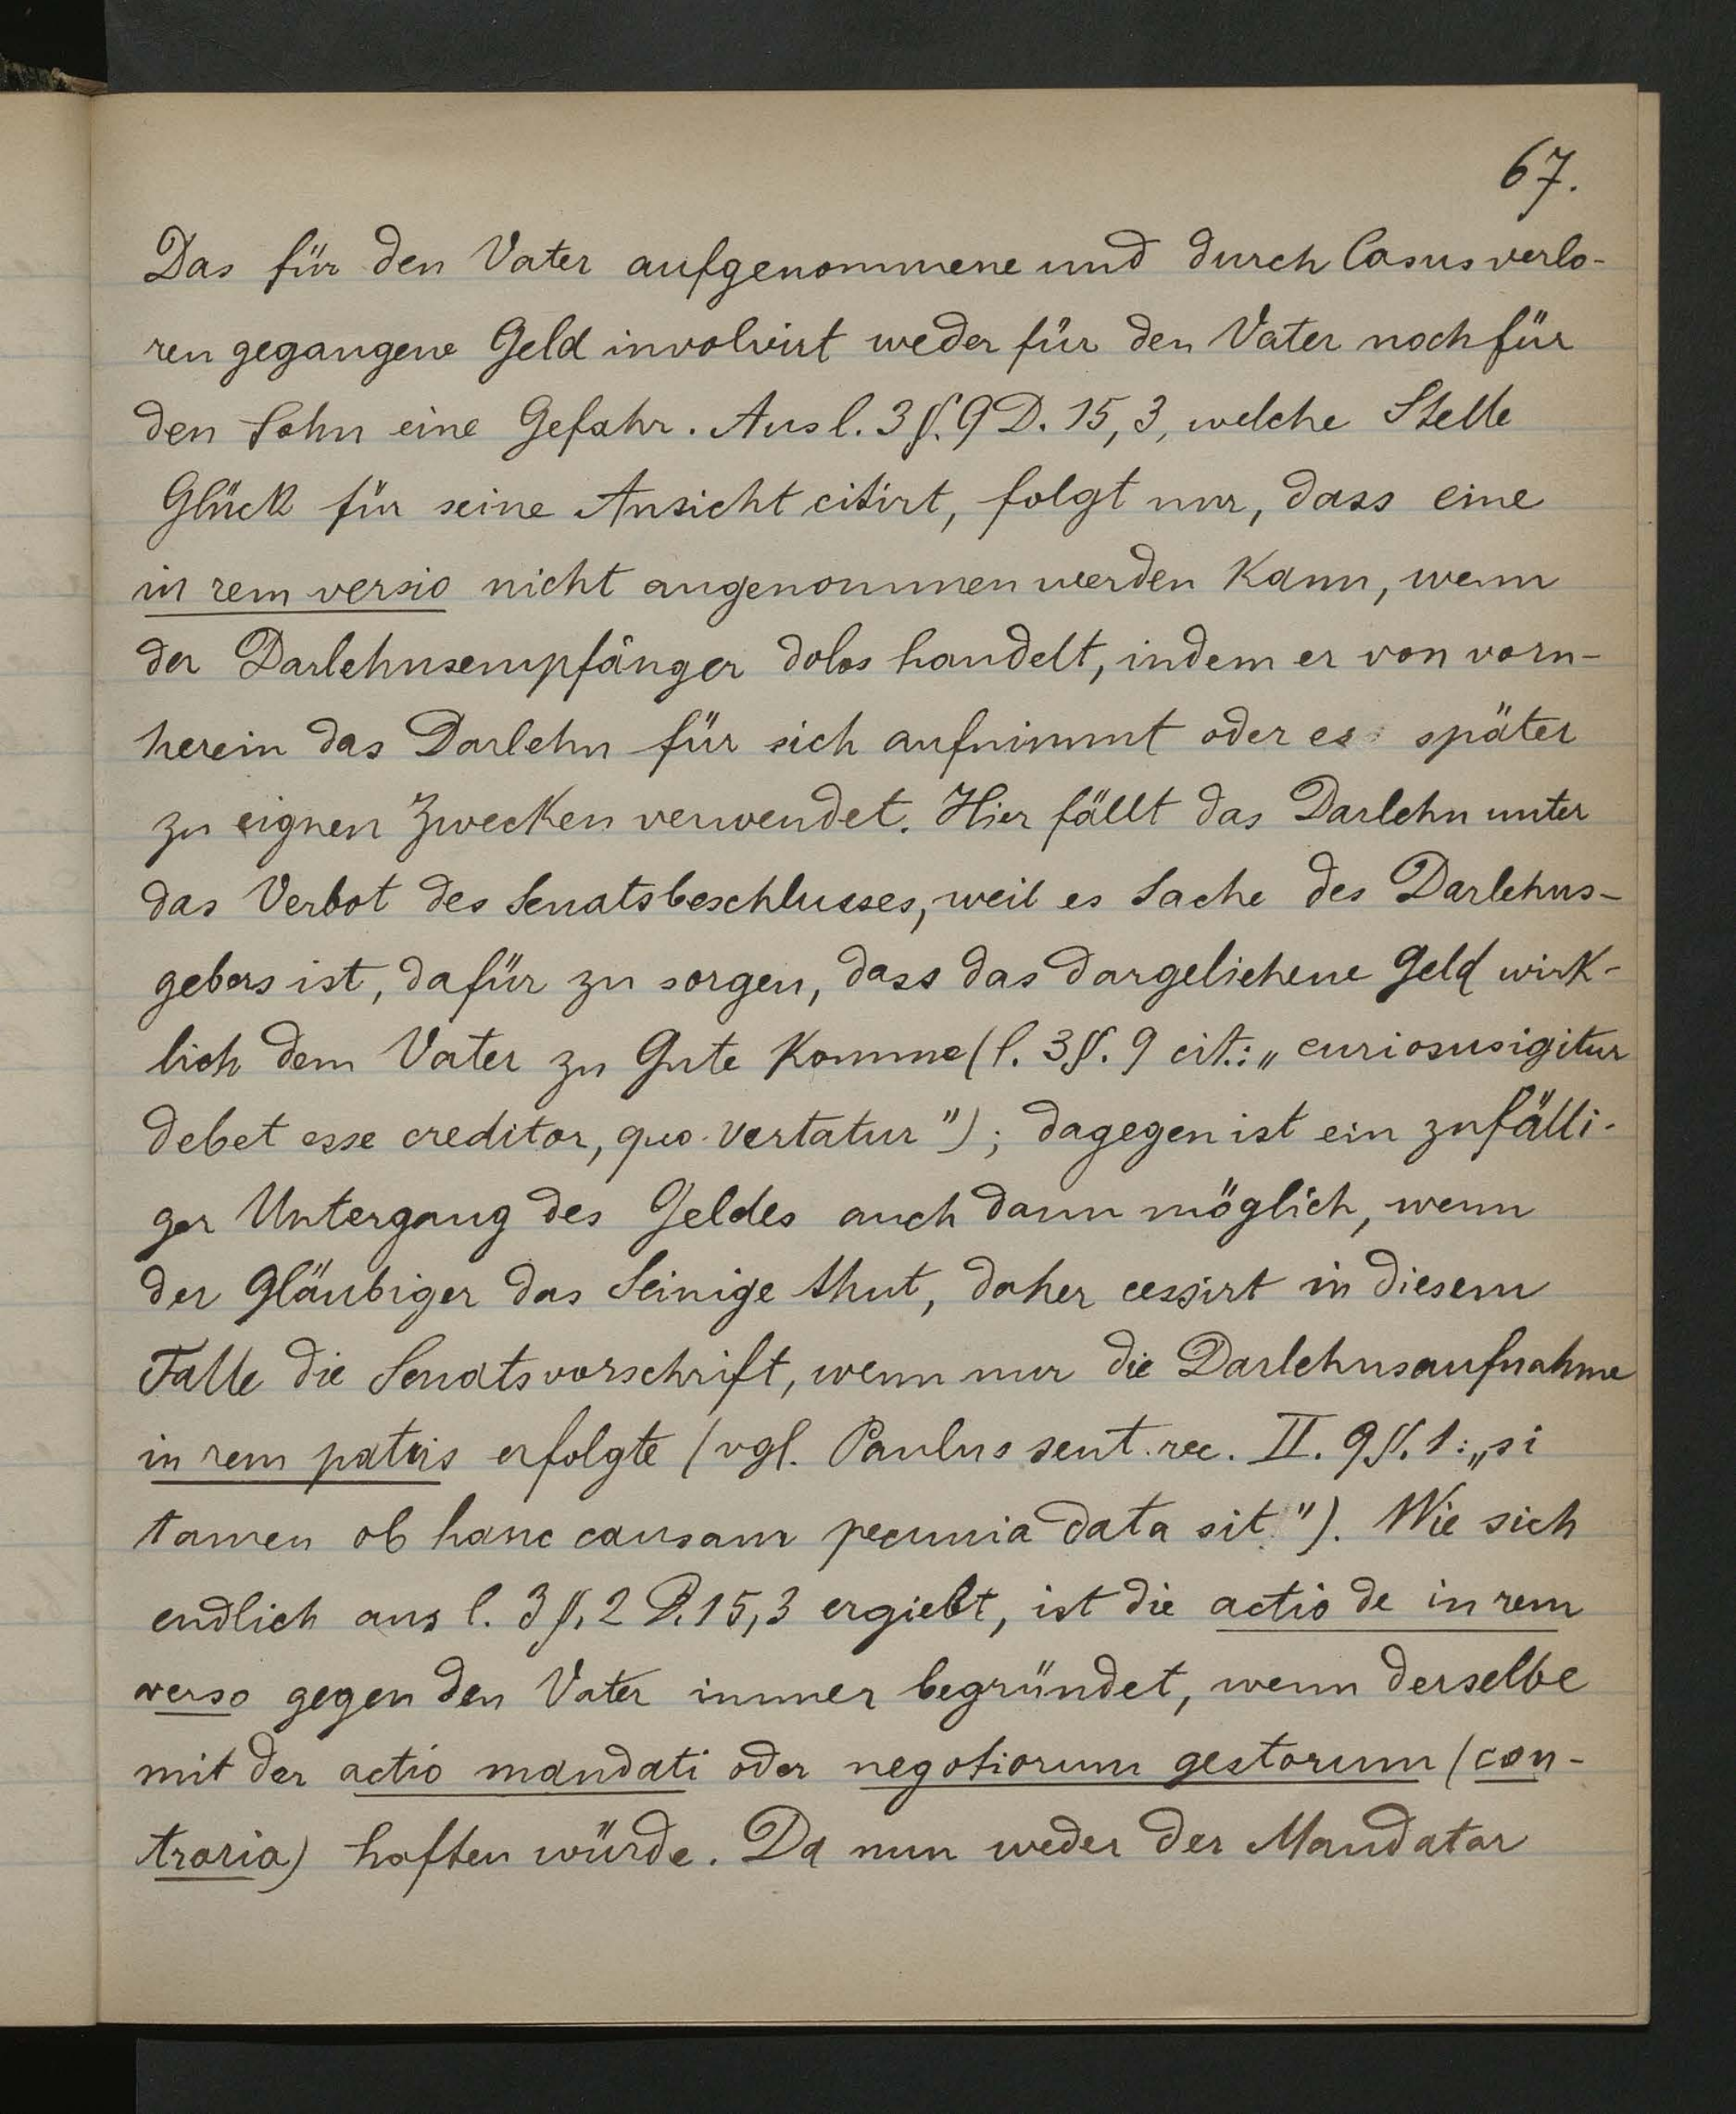 67.
Das für den Vater aufgenommene und durch Casus verlo-
ren gegangene Geld involvirt weder für den Vater noch für
den Sohn eine Gefahr. Aus l. 3 §. 9 D. 15, 3, welche Stelle
Glück für seine Ansicht citirt, folgt nur, dass eine
in rem versio nicht angenommen werden kann, wenn
der Darlehnsempfänger dolos handelt, indem er von vorn-
herein das Darlehn für sich aufnimmt oder es später
zu eignen Zwecken verwendet. Hier fällt das Darlehn unter
das Verbot des Senatsbeschlusses, weil es Sache des Darlehns-
gebers ist, dafür zu sorgen, dass das dargeliehene Geld wirk-
lich dem Vater zu Gute komme (l. 3 §. 9 cit.: „curiosus igitur
debet esse creditor, quo vertatur"); dagegen ist ein zufälli-
ger Untergang des Geldes auch dann möglich, wenn
der Gläubiger das Seinige thut, daher cessirt in diesem
Falle die Senatsvorschrift, wenn nur die Darlehnsaufnahme
in rem patris erfolgte (vgl. Paulus sent. rec. II. 9 §. 1: „si
tamen ob hanc causam pecunia data sit."). Wie sich
endlich aus l. 3 §. 2 D. 15, 3 ergiebt, ist die actio de in rem
verso gegen den Vater immer begründet, wenn derselbe
mit der actio mandati oder negotiorum gestorum (con-
traria) haften würde. Da nun weder der Mandatar